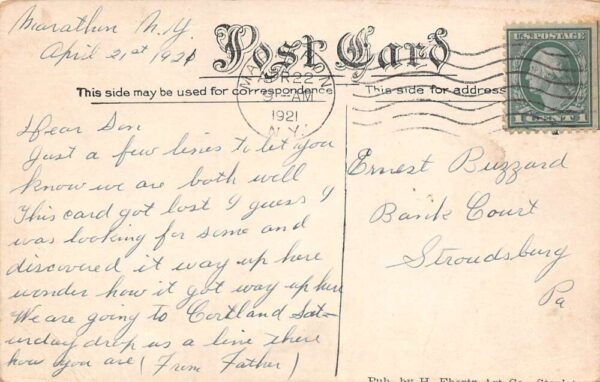 Marathon N.Y.
April 21st 1921
Post Card
This side may be used for correspondence
This side for address
MARATHON
APR 22
9-AM
1921
N.Y.
U.S. POSTAGE
1 CENT 1
Dear Son
Just a few lines to let you
know we are both well
This card got lost I guess I
was looking for some and
discovered it way up here
wonder how it got way up here
We are going to Cortland Sat-
urday drop us a line there
how you are (From Father)
Ernest Buzzard
Bank Court
Stroudsburg
Pa
Pub. by H. Art Co.